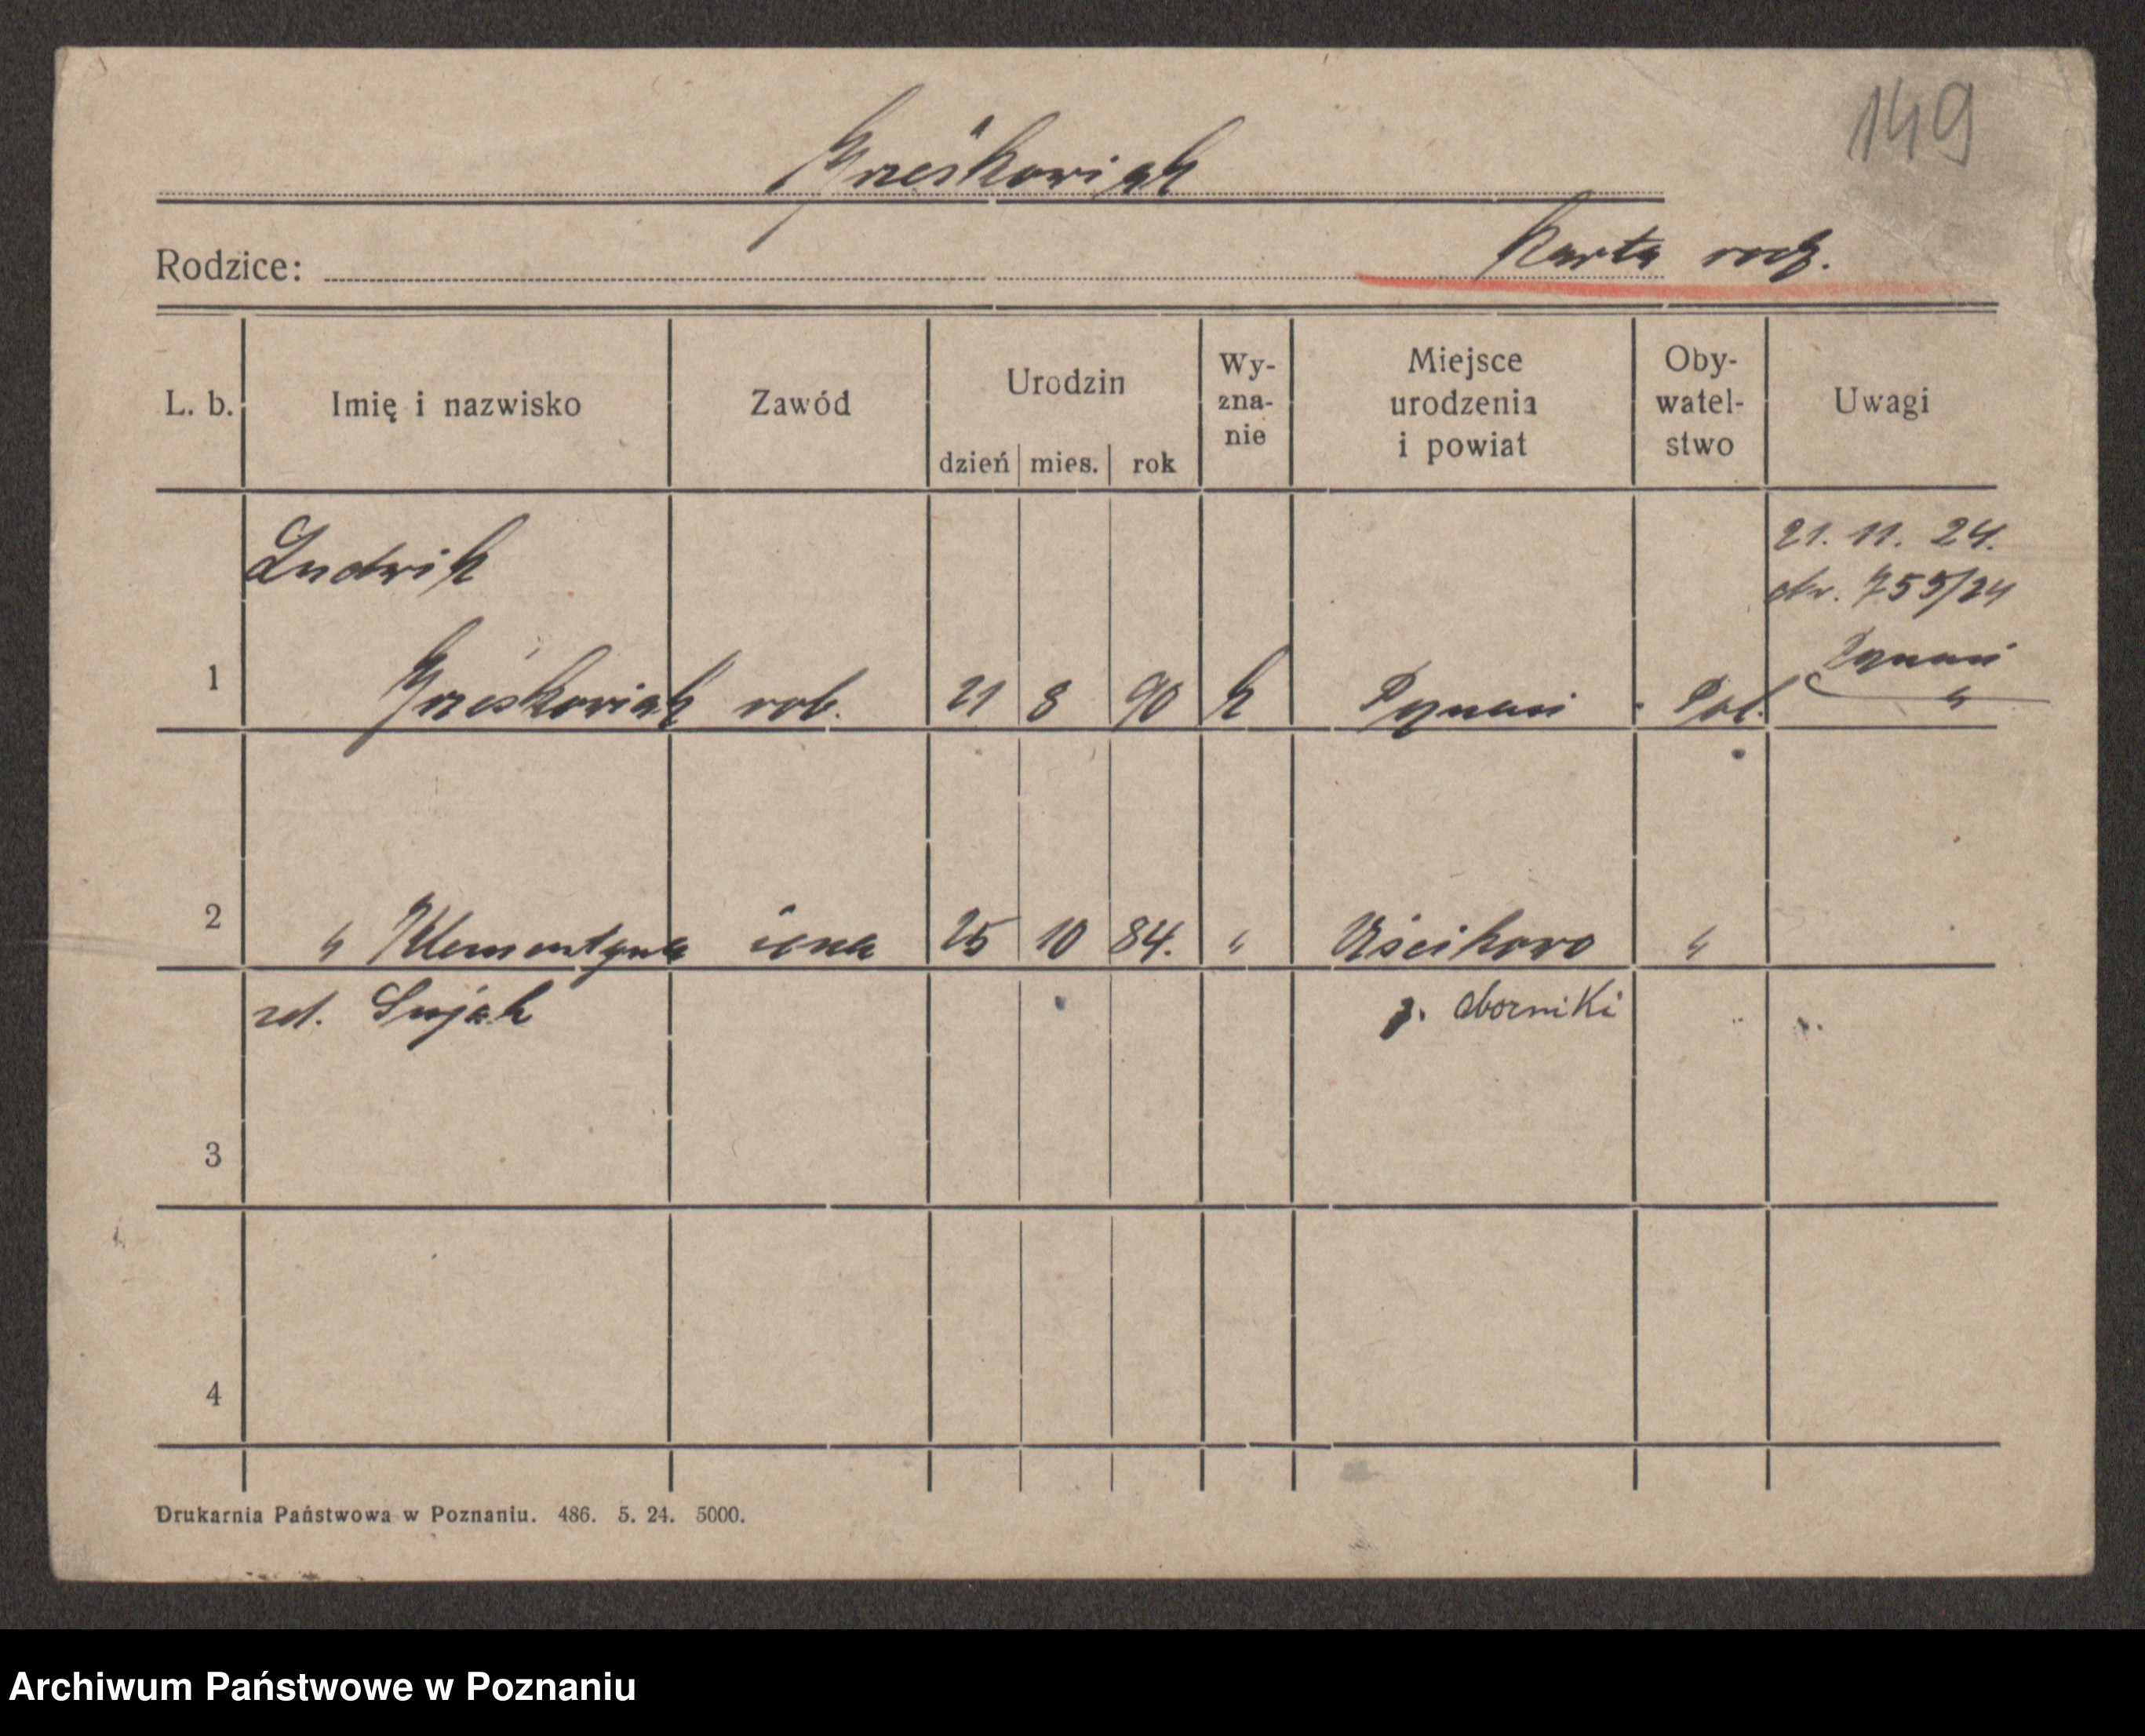 149
Grześkowiak
Rodzice:
Karta rodz.
L. b. Imię i nazwisko Zawód Urodzin dzień mies. rok Wy-zna-nie Miejsce urodzenia i powiat Oby-watel-stwo Uwagi
Ludwik
21. 11. 24.
755/24
Poznań
1 Grześkowiak rob. 21 8 90 k Poznań Pol. "
2 " Klementyna żona 25 10 84. " Uścikowo "
zd. Sujak p. Oborniki
3
4
Drukarnia Państwowa w Poznaniu. 486. 5. 24. 5000.
Archiwum Państwowe w Poznaniu